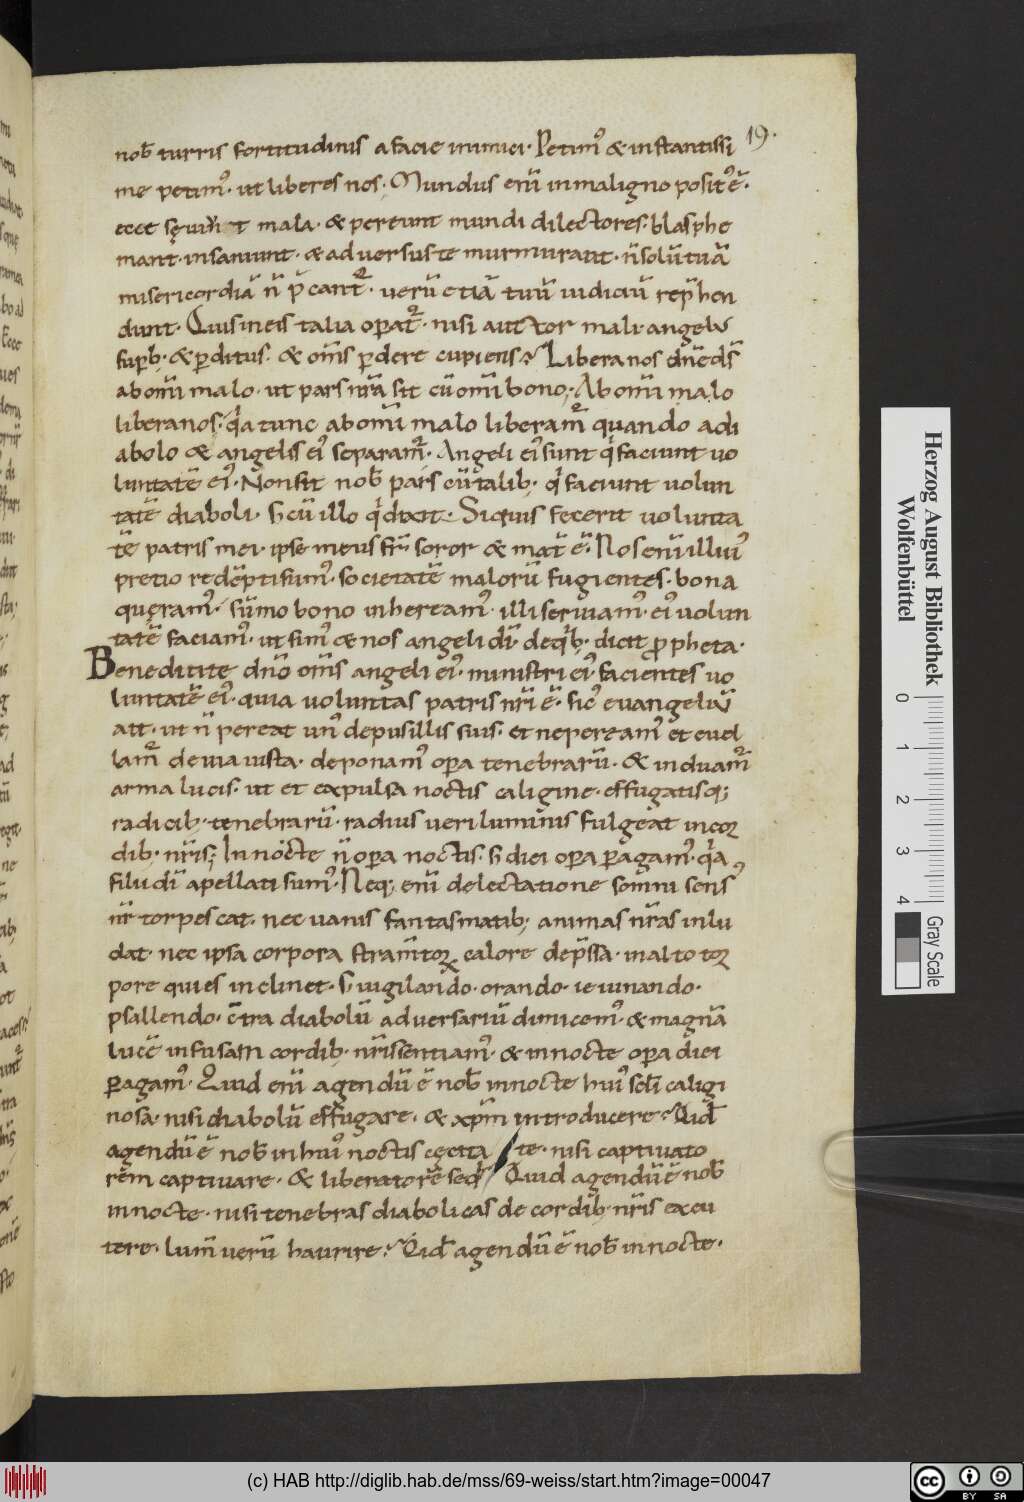 19.
nob̄ turris fortitudinis a facie inimici· Petim᾽ & instantissi
me petim᾽· ut liberes nos· Mundus enī in maligno posit᾽ ē·
ecce sęviunt mala· & pereunt mundi dilectores· blasphe
mant· insaniunt· & adversus te murmurant· n̄ solū tuā
misericordiā n̄ p̄cant᾽· verū etiā tuū iudiciū rep̄hen
dunt· Quis in eis talia opat᾽· nisi auctor mali· angelus
supb; & pditus· & om̄s pdere cupiens? Libera nos dn̄e ds̄
ab om̄i malo· ut pars nr̄a sit cū om̄i bono; Ab om̄i malo
libera nos· qia tunc ab om̄i malo liberam᾽ quando a di
abolo & angelis ei᾽ separam᾽· Angeli ei᾽ sunt qi faciunt vo
luntatē ei᾽· Non sit nob̄ pars cū talib; qi faciunt volun
tatē diaboli· s; cū illo qi dixit· Siquis fecerit volunta
tē patris mei· ipse meus fr̄· soror & mat̄ ē· Nos enī illui᾽
pretio redēpti sum᾽· societatē malorū fugientes· bona
quęram᾽· sūmo bono inheream᾽· illi serviam᾽· ei᾽ volun
tatē faciam᾽· ut sim᾽ & nos angeli dī· de qib; dicit ppheta·
Benedicite dn̄o om̄s angeli ei᾽· ministri ei᾽ facientes vo
luntatē ei᾽· quia voluntas patris nr̄i ē· sic᾽ evangeliū
ait· ut n̄ pereat un᾽ de pusillis suis· et ne peream᾽ et evel
lam᾽ de via iusta· deponam᾽ opa tenebrarū· & induam᾽
arma lucis· ut et expulsa noctis caligine· effugatisq;
radicib; tenebrarū· radius veri luminis fulgeat in cor
dib; nr̄is; In nocte n̄ opa noctis· s; diei opa pagam᾽· qia
filii dī apellati sum᾽· Neq; enī delectatione somni sens᾽
nr̄ torpescat· nec vanis fantasmatib; animas nr̄as inlu
dat· nec ipsa corpora stram̄tor᾽ calore dep̄ssa· in alto tor
pore quies inclinet· s; vigilando· orando· ieiunando·
psallendo· c̄tra diabolū adversariū dimicem᾽· & magnā
lucē infusam cordib; nr̄is sentiam᾽· & in nocte opa diei
pagam᾽· Quid enī agendū ē nob̄ in nocte hui᾽ sc̄li caligi
nosa· nisi diabolū effugare· & xp̄m introducere? Qid̄
agendū ē nob̄ in hui᾽ noctis cęcita te· nisi captivato
rēm captivare· & liberatorē seq᾽ Quid agendū ē nob̄
in nocte· nisi tenebras diabolicas de cordib; nr̄is excu
tere· lum̄ verū haurire? Qid̄ agendū ē nob̄ in nocte·
Herzog August Bibliothek
Wolfenbüttel
0 1 2 3 4
Gray Scale
(c) HAB http://diglib.hab.de/mss/69-weiss/start.htm?image=00047
cc BY SA